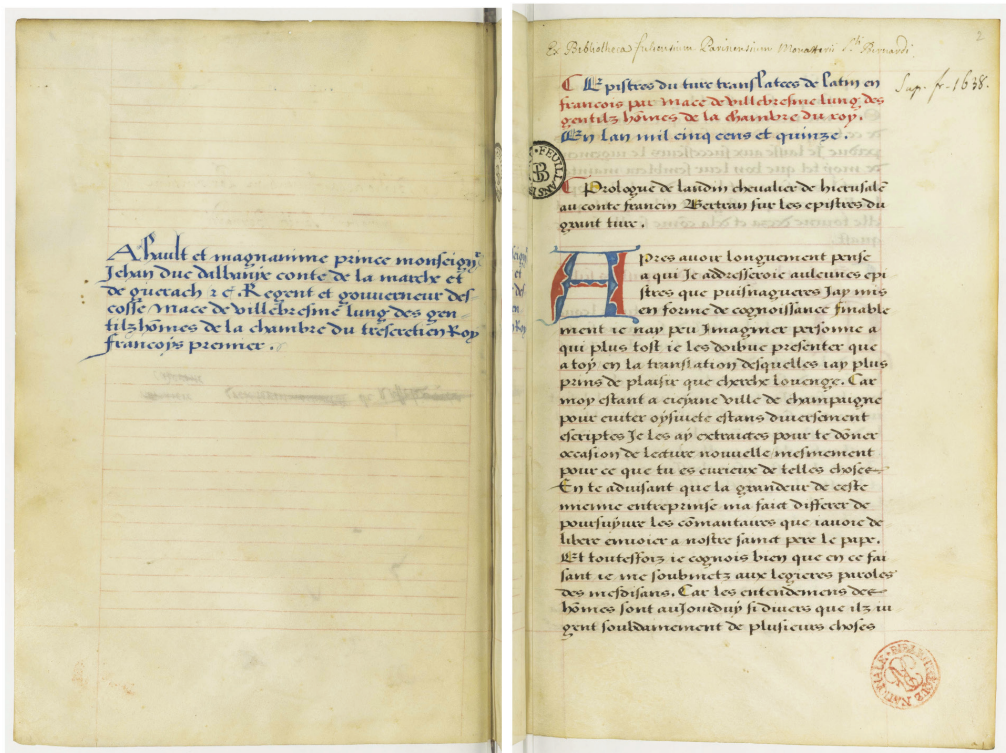 A hault et magnanime prince monseignr
Jehan duc dalbanye conte de la marche et
de guerach zc. Regent et gouverneur des
cosse / Mace de villebresme lung des gen
tilz hōmes de la chambre du trescretien Roy
francoys premier .
2
Ex Bibliotheca fuliensium Parisiensium Monasterii Sti Bernardi.
Sup. fr. 1638.
Epistres du turc translatees de latin en
francois par mace de villebresme lung des
gentilz hōmes de la chambre du roy.
En lan mil cinq cens et quinze .
Prologue de laudin chevalier de hierusalē
au conte francin Bertran sur les epistres du
grant turc .
Apres avoir longuement pense
a qui Je addresseroie aulcunes epi
stres que puisnagueres Jay mis
en forme de cognoissance finable
ment ie nay peu Imaginer personne a
qui plus tost ie les doibue presenter que
a toy en la translation desquelles iay plus
prins de plaisir que cherche louenge. Car
moy estant a ville de champaigne
pour eviter oysiuete estans diversement
escriptes Je les ay extraictes pour te dōner
occasion de lecture nouvelle mesmement
pour ce que tu es curieux de telles choses
En te advisant que la grandeur de ceste
mienne entreprinse ma faict differer de
poursuyure les cōmantaires que iavoie de
libere envoier a nostre sainct pere le pape.
Et toutesfoiz ie cognois bien que en ce fai
sant ie me soubmetz aux legieres paroles
des mesdisans. Car les entendemens des
hōmes sont auJourduy si divers que ilz iu
gent souldainement de plusieurs choses
FEUILLANS
BIBLIOTHEQUE NATIONALE